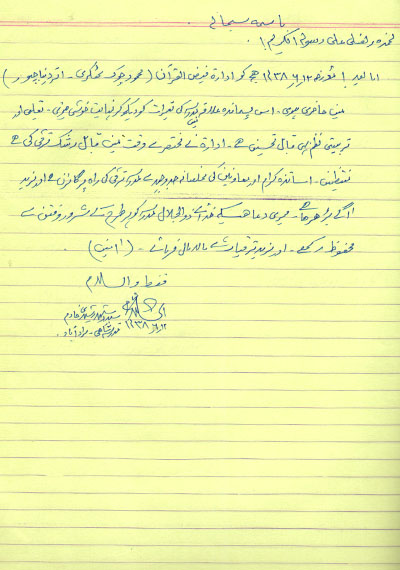 باسمہ سبحانہ
نحمدہ ونصلی علی رسولہ الکریم!
اما بعد! مؤرخہ ۱۲/۶/۱۴۳۸ھ کو ادارہ فیض القرآن (محمود چوک ٹھکری، اتر دیناجپور)
میں حاضری ہوئی۔ اس پسماندہ علاقہ میں مدرسہ کی تعمیرات کو دیکھ کر نہایت خوشی ہوئی۔ تعلیمی اور
تربیتی نظم بھی قابل تحسین ہے۔ ادارہ نے مختصر سے وقت میں قابل رشک ترقی کی ہے
منتظمین، اساتذہ کرام اور معاونین کی مخلصانہ جدوجہد سے مدرسہ ترقی کی راہ پر گامزن ہے اور مزید
آگے بڑھ رہا ہے۔ میری دعا ہے کہ خدائے ذوالجلال مدرسہ کو ہر طرح کے شرور وفتن سے
محفوظ رکھے۔ اور مزید ترقیات سے مالامال فرمائے۔ (آمین)
فقط والسلام
خادم
شاہی۔ مرادآباد
۱۲/۶/۱۴۳۸